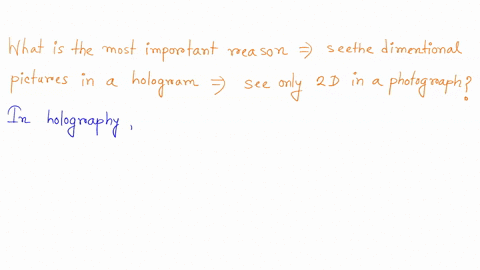 What is the most important reason ⇒ seethe dimentional
pictures in a hologram ⇒ see only 2D in a photograph?
In holography,